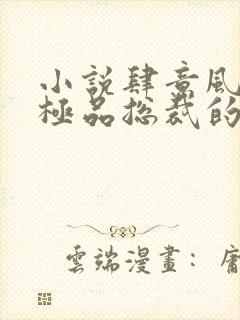 小說肆意風
極品總裁的
雲端漫畫：